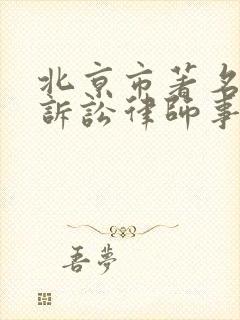 北京市著名
訴訟律師事
吾夢